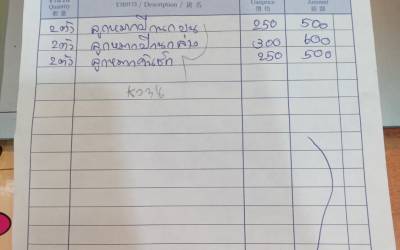 Quantity รายการ / Description / 品名 Unitprice Amount
2ตัว ลูกหมากปีกนกบน 250 500
2ตัว ลูกหมากปีกนกล่าง 300 600
2ตัว ลูกหมากคันชัก 250 500